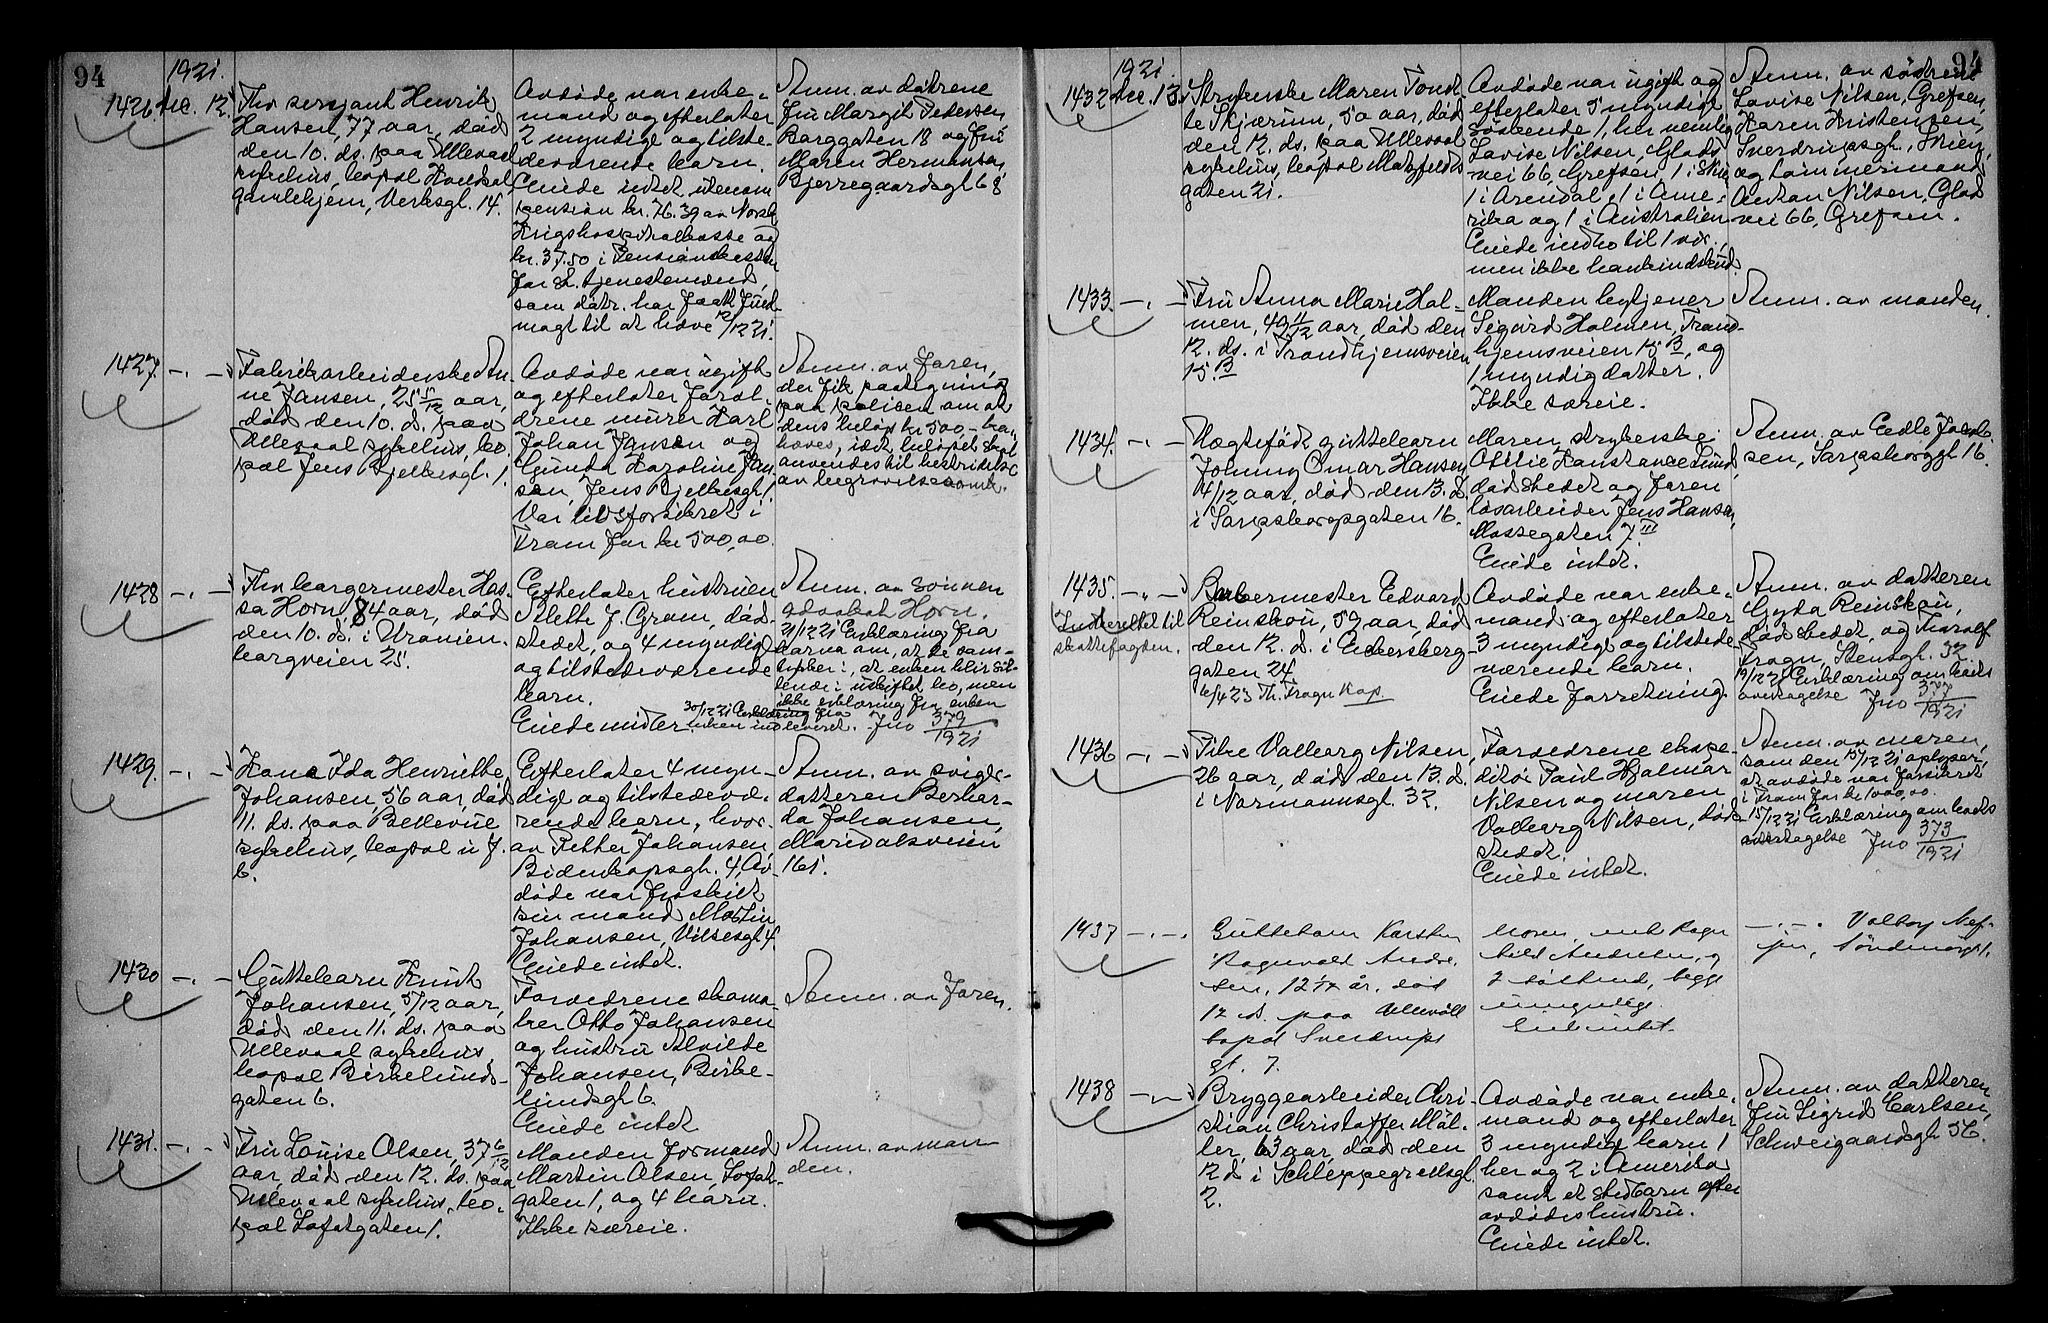 94
1921.
1426. Dec. 12.
Fhv. sersjant Henrik
Hansen, 77 aar, död
den 10. ds. paa Ullevaal
sykehus, bopæl
gamlehjem, Verksgt. 14.
Avdöde var enke-
mand og efterlater
2 myndige og tilste-
deværende barn.
Eiede intet utenom
pension kr. 76.39 av Norsk
Krigshospitalkasse og
kr. 37.50 i Pensionskassen
for St. tjenestemænd,
som datr. har faat fuld-
magt til at hæve 12/12 21.
Anm. av døtrene
Fru Margit Pedersen,
Borggaten 18 og Fru
Maren Hermansen,
Bjerregaardsgt. 68
1427. -.-
Fabrikarbeiderske An-
ne Jansen, 25 5/12 aar,
död den 10. ds. paa
Ullevaal sykehus, bo-
pæl Jens Bjelkesgt. 1.
Avdöde var ugift
og efterlater foræl-
drene murer Karl
Johan Jansen og
Gunda Karoline Jan-
sen, Jens Bjelkesgt. 1.
Var livsforsikret i
Fram for kr 500,00.
Anm. av faren,
der fik paategning
paa polisen om at
dens beløp kr 500 - kan
hæves, idet beløpet skal
anvendes til bestridelse
av begravelsesomk.
1428 -.-
Fhv borgermester Has-
sa Horn, 84 aar, död
den 10. ds. i Uranien-
borgveien 25.
Efterlater hustruen
Alette J. Gram, död-
stedet, og 4 myndige
og tilstedeværende
barn.
Eiede midler.
30/12 21 Erklæring fra
enken indleveret.
Anm. av sønnen
advokat Horn.
21/12 21 Erklæring fra
barna om, at de sam-
tykker i, at enken blir sit-
tende i uskiftet bo, men
ikke erklæring fra enken
Jno 379/1921
1429. -.-
Kone Ida Henriette
Johansen, 56 aar, död
11. ds. paa Bellevue
sykehus, bopæl u. f.
b.
Efterlater 4 myn-
dige og tilstedevæ-
rende barn, hvor-
av Petter Johansen
Bidenkapsgt. 4, Av-
döde var fraskilt
sin mand Martin
Johansen, Vibesgt. 4
Eiede intet.
Anm. av sviger-
datteren Berhar-
da Johansen,
Maridalsveien
161.
1430 -.-
Guttebarn Knut
Johansen, 5/12 aar,
död den 11. ds. paa
Ullevaal sykehus,
bopæl Birkelunds-
gaten 6.
Forældrene skoma-
ker Otto Johansen
og hustru Alvilde
Johansen, Birke-
lundsgt. 6.
Eiede intet
Anm. av faren.
1431. -.-
Fru Louise Olsen, 37 6/12
aar, död den 12. ds. paa
Ullevaal sykehus, bo-
pæl Lofotgaten 1.
Manden formand
Martin Olsen, Lofot-
gaten 1, og 4 barn.
Ikke særeie.
Anm. av man
den.
94
1921.
1432 Dec. 13.
Strykerske Maren Tomi-
ne Skjærum, 50 aar, död
den 12. ds. paa Ullevaal
sykehus, bopæl Maltzfeldts
gaten 21.
Avdöde var ugift og
efterlater 5 myndige
söskende 1, her nemlig
Lovise Nilsen, Glads
vei 66, Grefsen, 1 i Skien
1 i Arendal, 1 i Ame-
rika og 1 i Australien
Eiede indbo til 1 vær.,
men ikke bankindskud
Anm. av søstrene
Lovise Nilsen, Grefsen,
Karen Kristensen,
Sverdrupsgt., Skien,
og tømmermand
Anton Nilsen, Glad
vei 66, Grefsen.
1433. -.-
Fru Anna Marie Hol-
men, 49 11/12 aar, död den
12. ds. i Trondhjemsveien
15. B
Manden bytjener
Sigurd Holmen, Trond-
hjemsveien 15 B, og
1 myndig datter.
Ikke særeie.
Anm. av manden.
1434. -.-
Uægtefödt guttebarn
Johnny Omar Hansen
4/12 aar, död den 13. ds.
i Sarpsborggaten 16.
Moren, strykerske
Otilie Konstance Lund,
dödstedet og faren
løsarbeider Jens Hansen,
Mossegaten 7 III
Eiede intet.
Anm. av Edle Jacob-
sen, Sarpsborggt. 16.
1435. -.-
Indberettet til
skattefogden.
Barbermester Edvard
Reinskou, 59 aar, död
den 12. ds. i Eckersberg-
gaten 24.
6/4 23 Th. Fragn Kap.
Avdöde var enke-
mand og efterlater
3 myndige og tilstede-
værende barn.
Eiede forretning.
Anm. av datteren
Gyda Reinskou,
dödstedet, og Thoralf
Fragn, Stensgt. 32
19/12 21 Erklæring om boets
overtagelse Jno 377/1921
1436 -.-
Pike Valborg Nilsen,
26 aar, död den 13. ds.
i Normannsgt. 32.
Forældrene ekspe-
ditør Paul Hjalmar
Nilsen og moren
Valborg Nilsen, död-
stedet.
Eiede intet.
Anm. av moren,
som den 15/12 21 oplyser,
at avdøde var forsikret
i Fram for kr 1000,00.
15/12 21 Erklæring om boets
overtagelse Jno 373/1921
1437 -.-.
Guttebarn Karsten
Ragnvald Andre-
sen, 12 år, död
12 ds. paa Ullevåll
bopæl Sverdrups
gt. 7.
Moren, enke Ragn
hild Andresen, og
2 søskend, begge
umyndige.
Eied intet.
-.-. Valborg
Søndmørsgt.
1438 -.-
Bryggearbeider Chri-
stian Christoffer Møl-
ler, 63 aar, död den
12 ds i Schleppegrellsgt.
2.
Avdöde var enke-
mand og efterlater
3 myndige barn 1
her og 2 i Amerika
samt et stedbarn efter
avdödes hustru.
Eiede intet.
Anm. av datteren
fru Sigrid Carlsen,
Schweigaardsgt. 56.